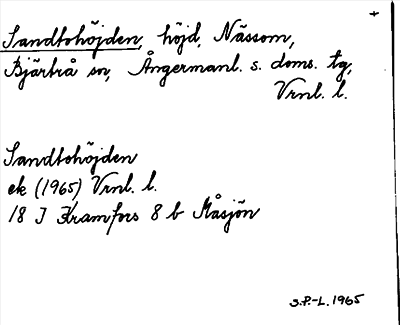 Sandtohöjden, höjd, Nässom,
Bjärtrå sn, Ångermanl. s. doms. tg,
Vrnl. l.
Sandtohöjden
ek (1965) Vrnl. l.
18 I Kramfors 8 b Måsjön
S.P.-L. 1965